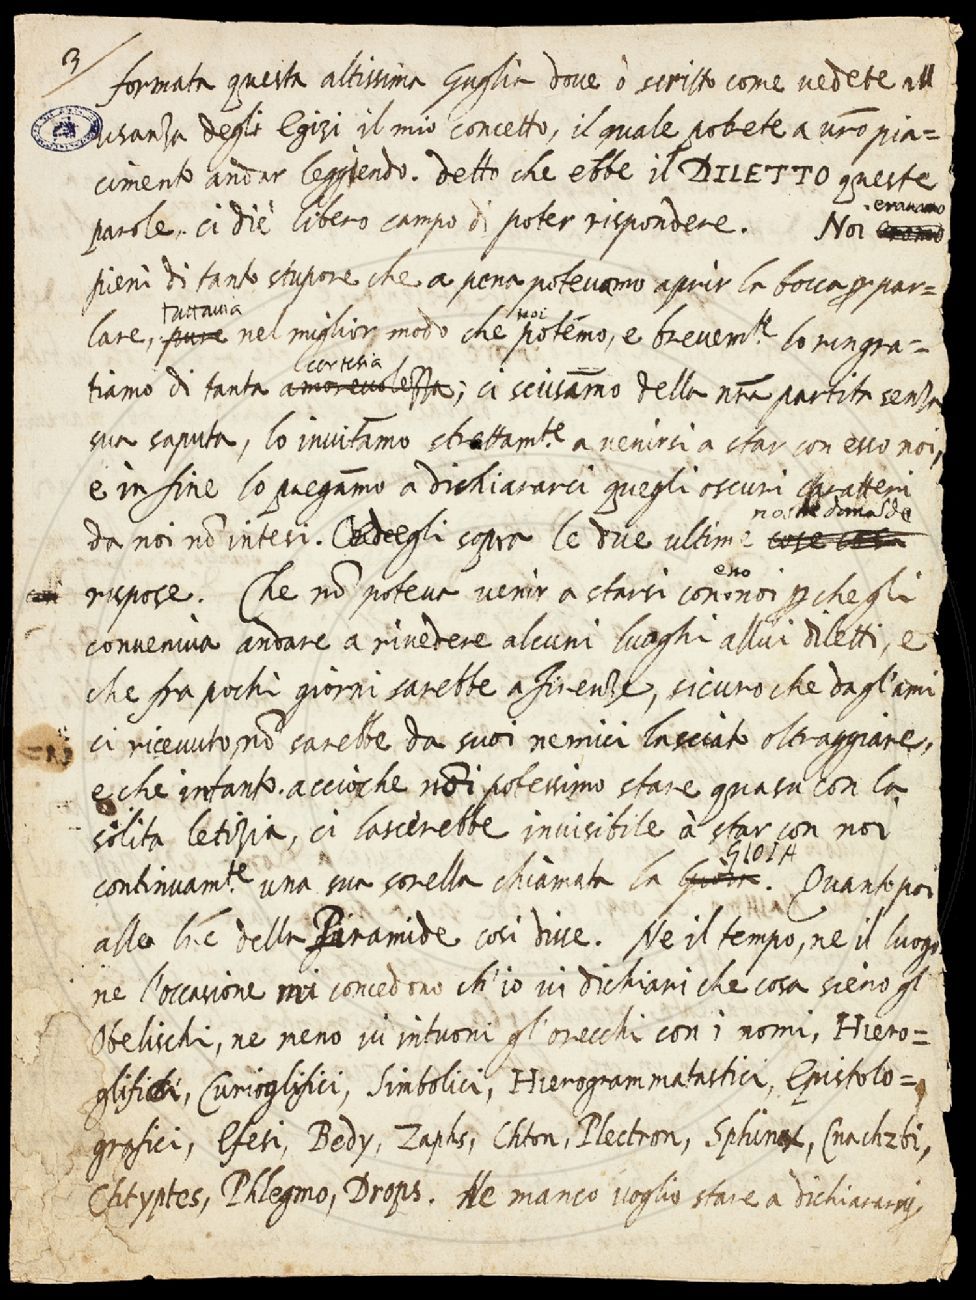 3
formata questa altissima Guglia dove ò scritto come vedete all
usanza degli Egizi il mio concetto, il quale potete a vr̃o pia=
cimento andar leggiendo. detto che ebbe il DILETTO queste
parole, ci diè libero campo di poter rispondere. Noi eravamo
pieni di tanto stupore che a pena potevamo aprir la bocca p par=
lare, pure tuttavia nel miglior modo che noi potémo, e brevem.te lo ringra=
tiamo di tanta amorevolezza cortesia; ci scusam̃o della nr̃a partita senza
sua saputa, lo invitam̃o strettam.te a venirsi a star con esso noi,
e in fine lo pregam̃o a dichiararci quegli oscuri caratteri
da noi nõ intesi. egli sopra le due ultime nostre domande
rispose. Che nõ poteva venir a starsi con esso noi p che gli
conveniva andare a rivedere alcuni luoghi allui diletti, e
che fra pochi giorni sarebbe a Firenze, sicuro che dagl'ami
ci ricevuto nõ sarebbe da suoi nemici lasciato oltraggiare,
e che intanto acciòche noi potessimo stare quasu con la
solita letizia, ci lascerebbe invisibile à star con noi
continuam.te una sua sorella chiamata la Gioia GIOIA. Quanto poi
alle lr̃e della Piramide cosi disse. Ne il tempo, ne il luogo
ne l'occasione mi concedono ch'io vi dichiari che cosa sieno gl'
Obelischi, ne meno vi intuoni gl'orecchi con i nomi, Hiero=
glifici, Curioglifici, Simbolici, Hierogrammatastici, Epistolo=
grafici, Efesi, Bedy, Zaphs, Chton, Plectron, Sphinx, Cnachzbi,
Chtyptes, Phlegmo, Drops. Ne manco voglio stare a dichiararvi